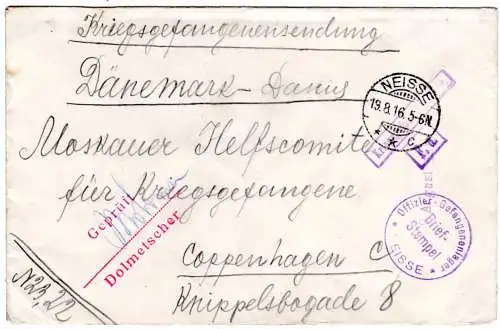 Kriegsgefangenensendung
Dänemark-Danis
NEISSE
19.8.16.5-6N.
* * c
Moskauer Helfscomite
F.a.
für Kriegsgefangene
Geprüft
Dolmetscher
Offizier-Gefangenenlager
Brief-
Stempel
* NEISSE *
Coppenhagen C
Knippelsbogade 8
N23,22